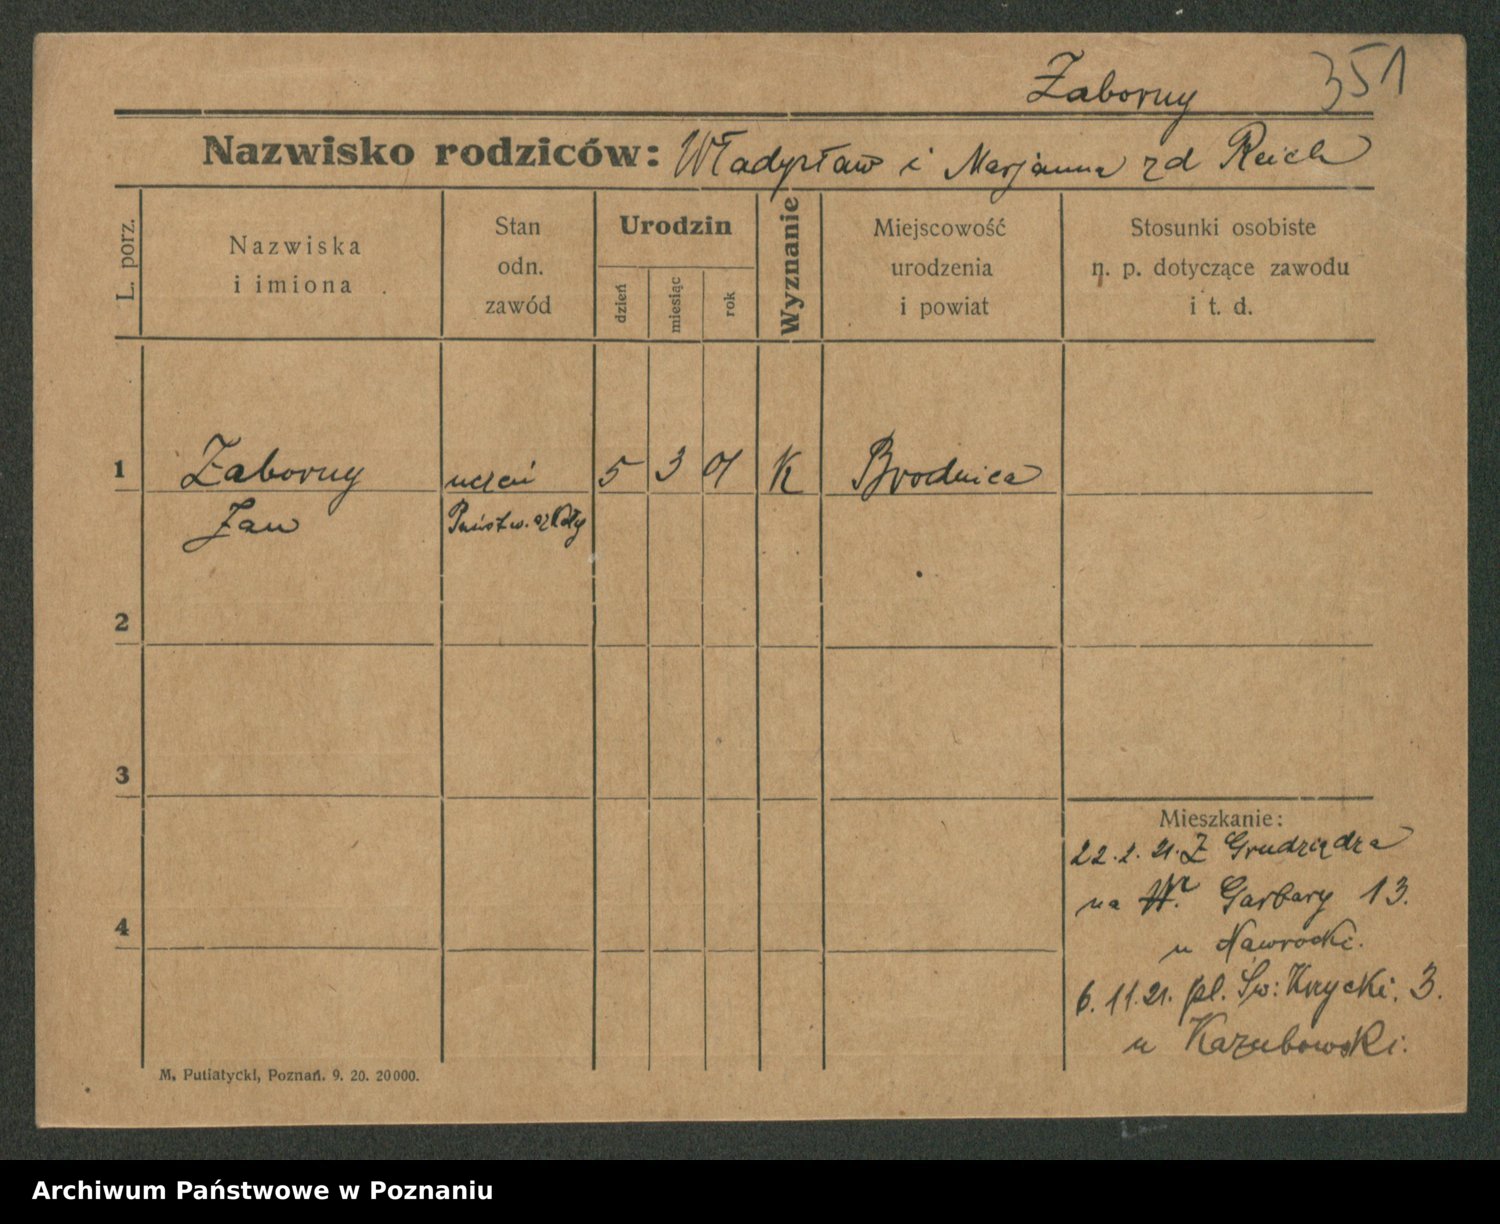 Zaborny 351
Nazwisko rodziców: Władysław i Marjanna zd Reich
L. porz.
Nazwiska
i imiona
Stan
odn.
zawód
Urodzin
dzień
miesiąc
rok
Wyznanie
Miejscowość
urodzenia
i powiat
Stosunki osobiste
n. p. dotyczące zawodu
i t. d.
1 Zaborny uczeń 5 3 01 K Brodnica
Jan Państw. szkoły
2
3
4
Mieszkanie:
22. 2. 21. Z Grudziądza
na W. Garbary 13.
u Nawrocki.
6. 11. 21. pl. Św: Krzycki. 3.
u Kazubowski.
M. Putiatycki, Poznań. 9. 20. 20000.
Archiwum Państwowe w Poznaniu